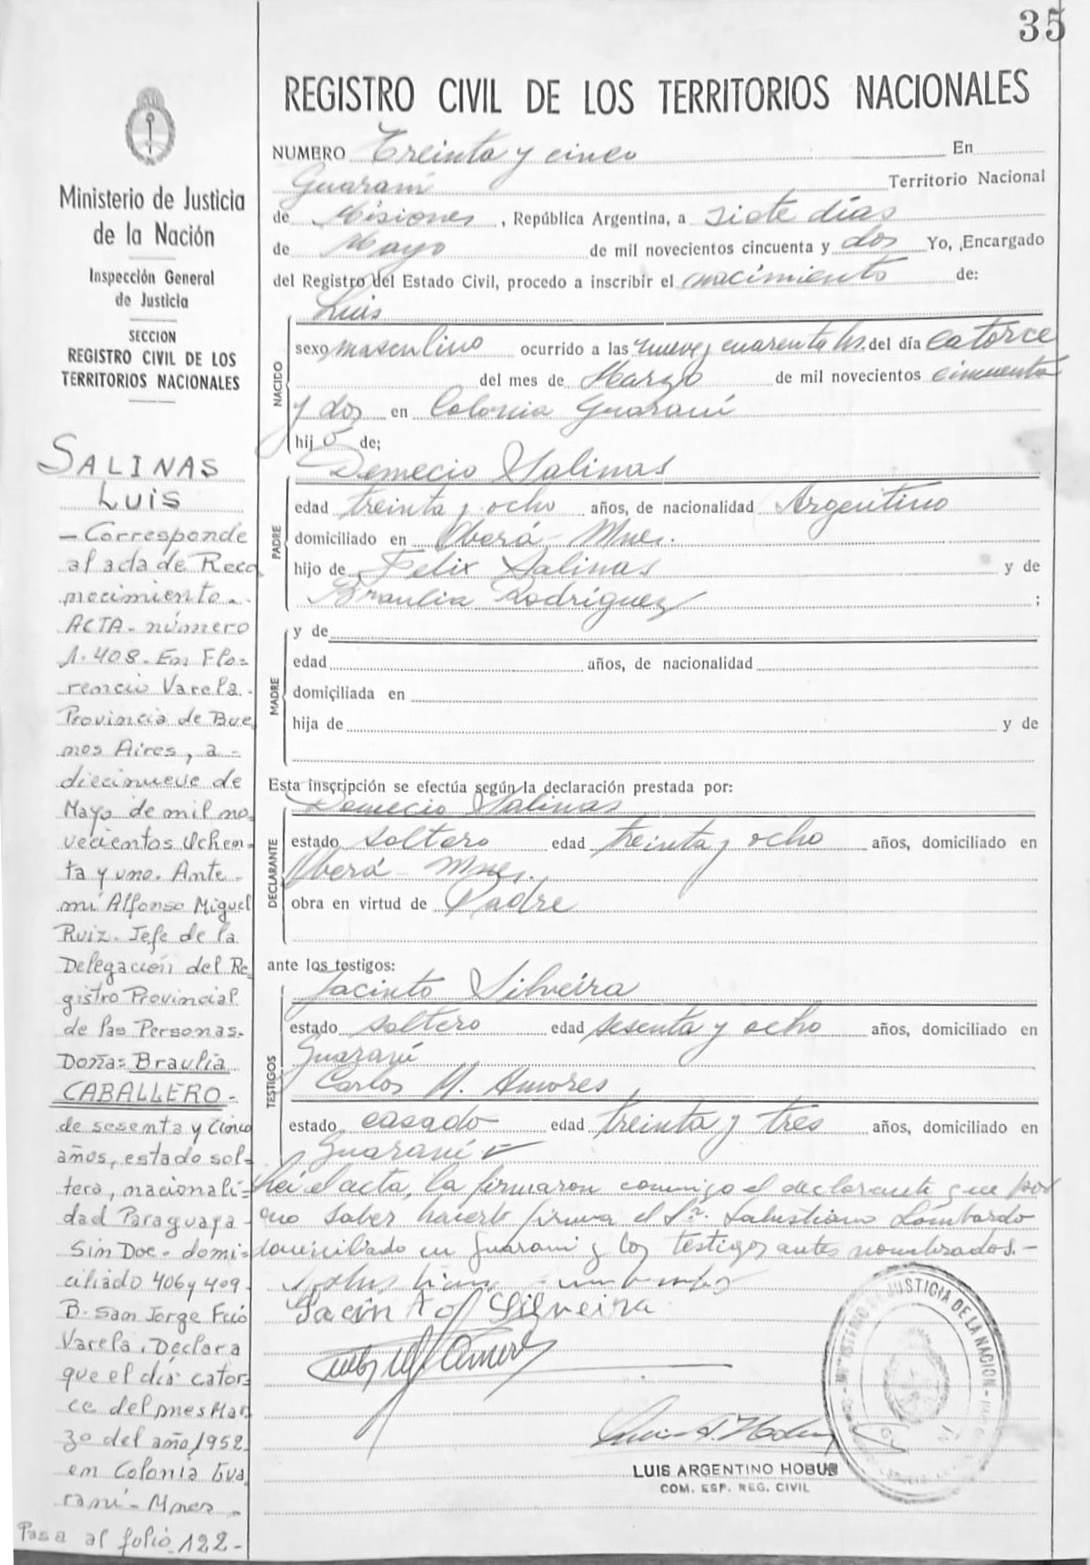 35
REGISTRO CIVIL DE LOS TERRITORIOS NACIONALES
NUMERO Treinta y cinco En
Guaraní Territorio Nacional
de Misiones, República Argentina, a siete días
de Mayo de mil novecientos cincuenta y dos Yo, Encargado
del Registro del Estado Civil, procedo a inscribir el nacimiento de:
Luis
NACIDO
sexo masculino ocurrido a las nueve y cuarenta hs. del día catorce
del mes de Marzo de mil novecientos cincuenta
y dos en Colonia Guaraní
hij o de;
Demecio Salinas
PADRE
edad treinta y ocho años, de nacionalidad Argentino
domiciliado en Oberá - Mnes.
hijo de Felix Salinas y de
Braulia Rodríguez ;
MADRE
y de
edad años, de nacionalidad
domiciliada en
hija de y de
Esta inscripción se efectúa según la declaración prestada por:
Demecio Salinas
DECLARANTE
estado soltero edad treinta y ocho años, domiciliado en
Oberá - Mnes.
obra en virtud de Padre
ante los testigos:
Jacinto Silveira
TESTIGOS
estado soltero edad sesenta y ocho años, domiciliado en
Guaraní
Carlos M. Amores
estado casado edad treinta y tres años, domiciliado en
Guaraní
leí el acta, la firmaron conmigo el declarante que por
no saber hacerlo firma el Sr. Salustiano Lombardo
domiciliado en Guaraní y los testigos antes nombrados.-
Jacinto Silveira
LUIS ARGENTINO HOBUS
COM. ESP. REG. CIVIL
MINISTERIO DE JUSTICIA DE LA NACION
Ministerio de Justicia
de la Nación
Inspección General
de Justicia
SECCION
REGISTRO CIVIL DE LOS
TERRITORIOS NACIONALES
SALINAS
LUIS
- Corresponde
al acta de Reco
nocimiento.-
ACTA - número
1.408. En Flo-
rencio Varela.-
Provincia de Bue
nos Aires, a -
diecinueve de
Mayo de mil no
vecientos Ochen-
ta y uno. Ante -
mí Alfonso Miguel
Ruiz. Jefe de la
Delegación del Re
gistro Provincial
de las Personas.
Doña: Braulia
CABALLERO -
de sesenta y cinco
años, estado sol-
tera, nacionali-
dad Paraguaya -
Sin Doc - domi-
ciliado 406 y 409
B. San Jorge Fcio
Varela. Declara
que el día cator-
ce del mes Mar
zo del año 1952
en Colonia Gua
raní - Mnes -
Pasa al folio 122 -